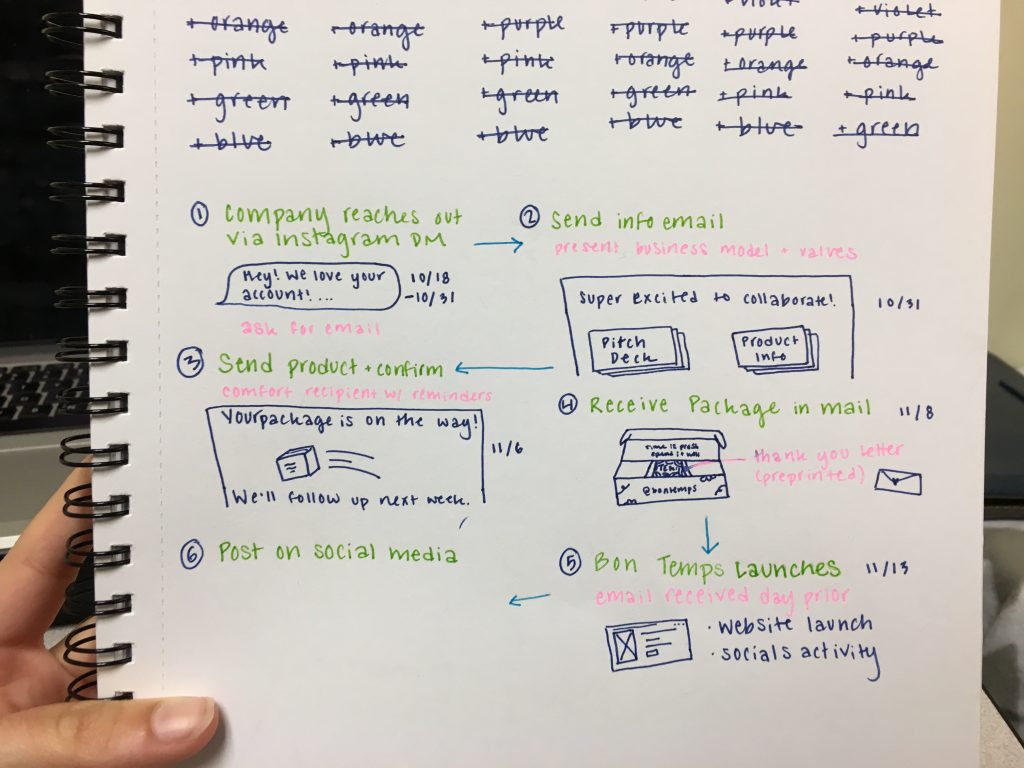 + violet
+ orange + orange + purple + purple + purple + purple
+ pink + pink + pink + orange + orange + orange
+ green + green + green + green + pink + pink
+ blue + blue + blue + blue + blue + green
① Company reaches out
via instagram DM
Hey! We love your
account! ...
10/18
-10/31
ask for email
② Send info email
present business model + values
Super excited to collaborate!
10/31
Pitch
Deck
Product
Info
③ Send product + confirm
comfort recipient w/ reminders
Your package is on the way!
11/6
We'll follow up next week.
④ Receive Package in mail 11/8
@bontemps
thank you letter
(preprinted)
⑤ Bon Temps Launches 11/13
email received day prior
· website launch
· socials activity
⑥ Post on social media